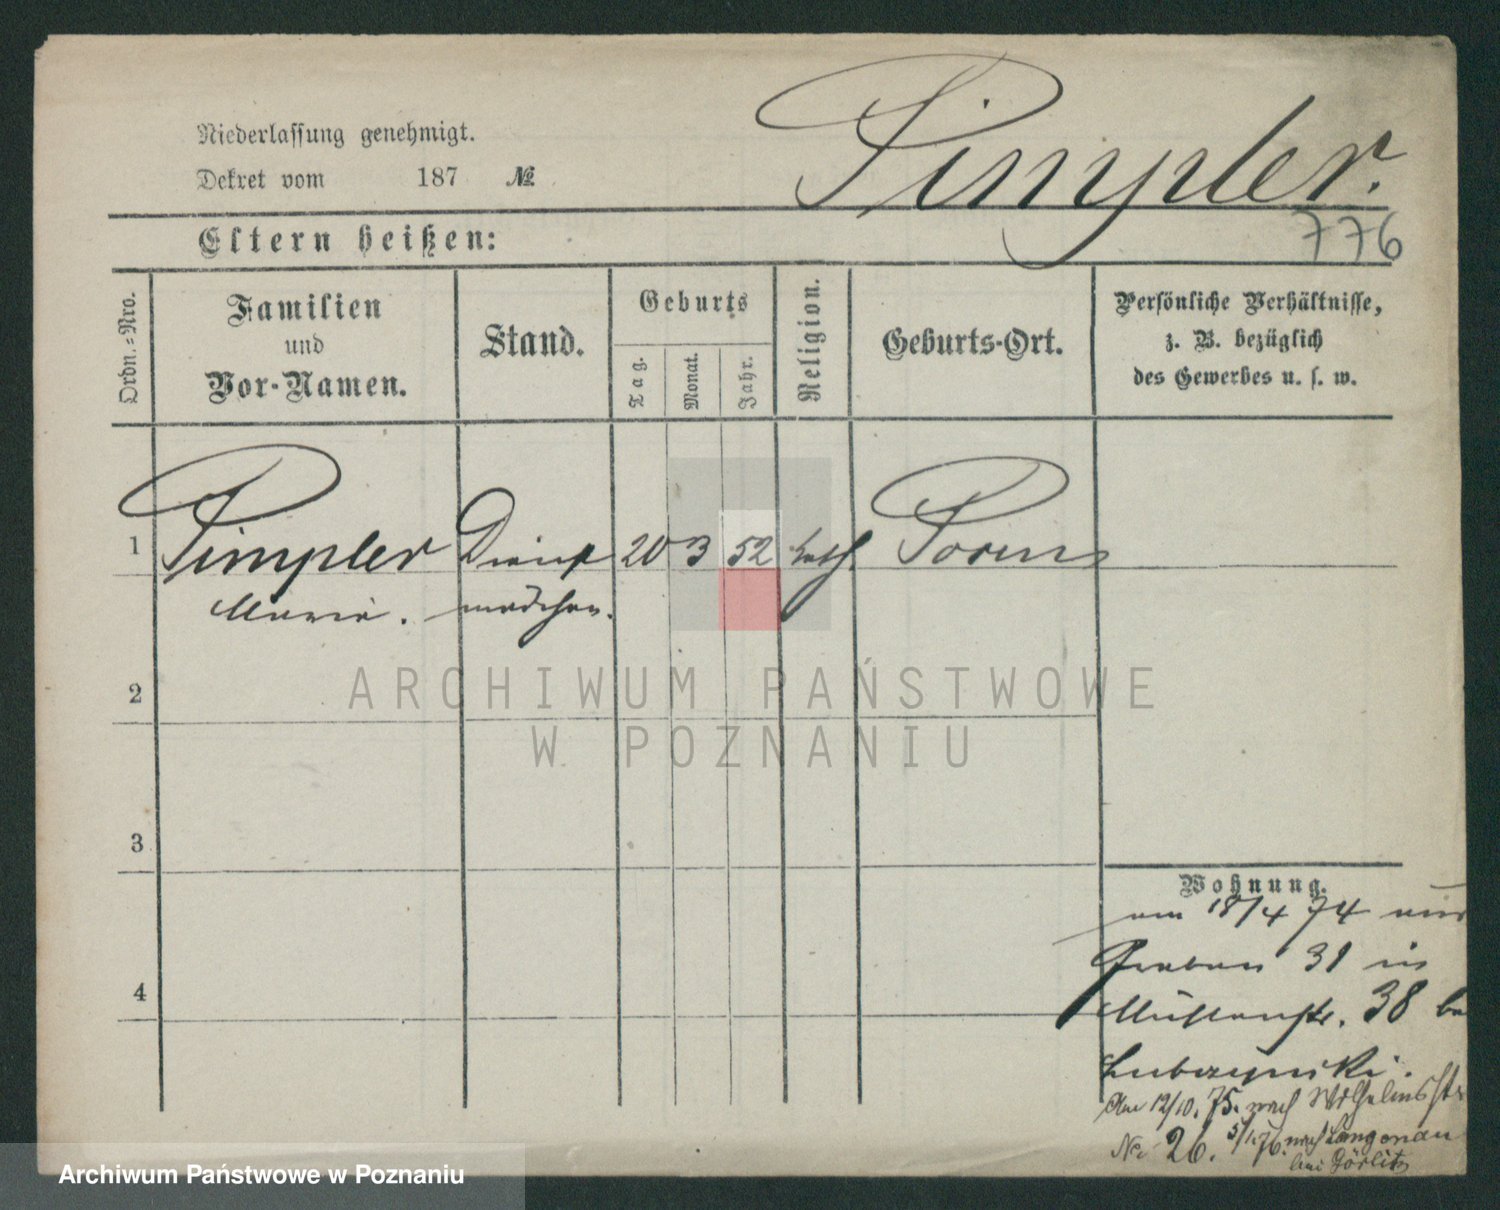 Pimpler.
Niederlassung genehmigt.
Dekret vom 187 №
776
Eltern heißen:
Ordn.-Nro.
Familien
und
Vor-Namen.
Stand.
Geburts
Tag.
Monat.
Jahr.
Religion.
Geburts-Ort.
Persönliche Verhältnisse,
z. B. bezüglich
des Gewerbes u. s. w.
1 Pimpler Dienst 20 3 52 kath. Posen
Maria. mädchen.
2
3
4
Wohnung.
am 18/4 74 aus
Graben 31 in
Mühlenstr. 38 be
Lubczynski.
Am 12/10. 75. nach Wilhelmsstr
No 26. 5/1. 76. nach Langenau
bei Görlitz
ARCHIWUM PAŃSTWOWE
W POZNANIU
Archiwum Państwowe w Poznaniu